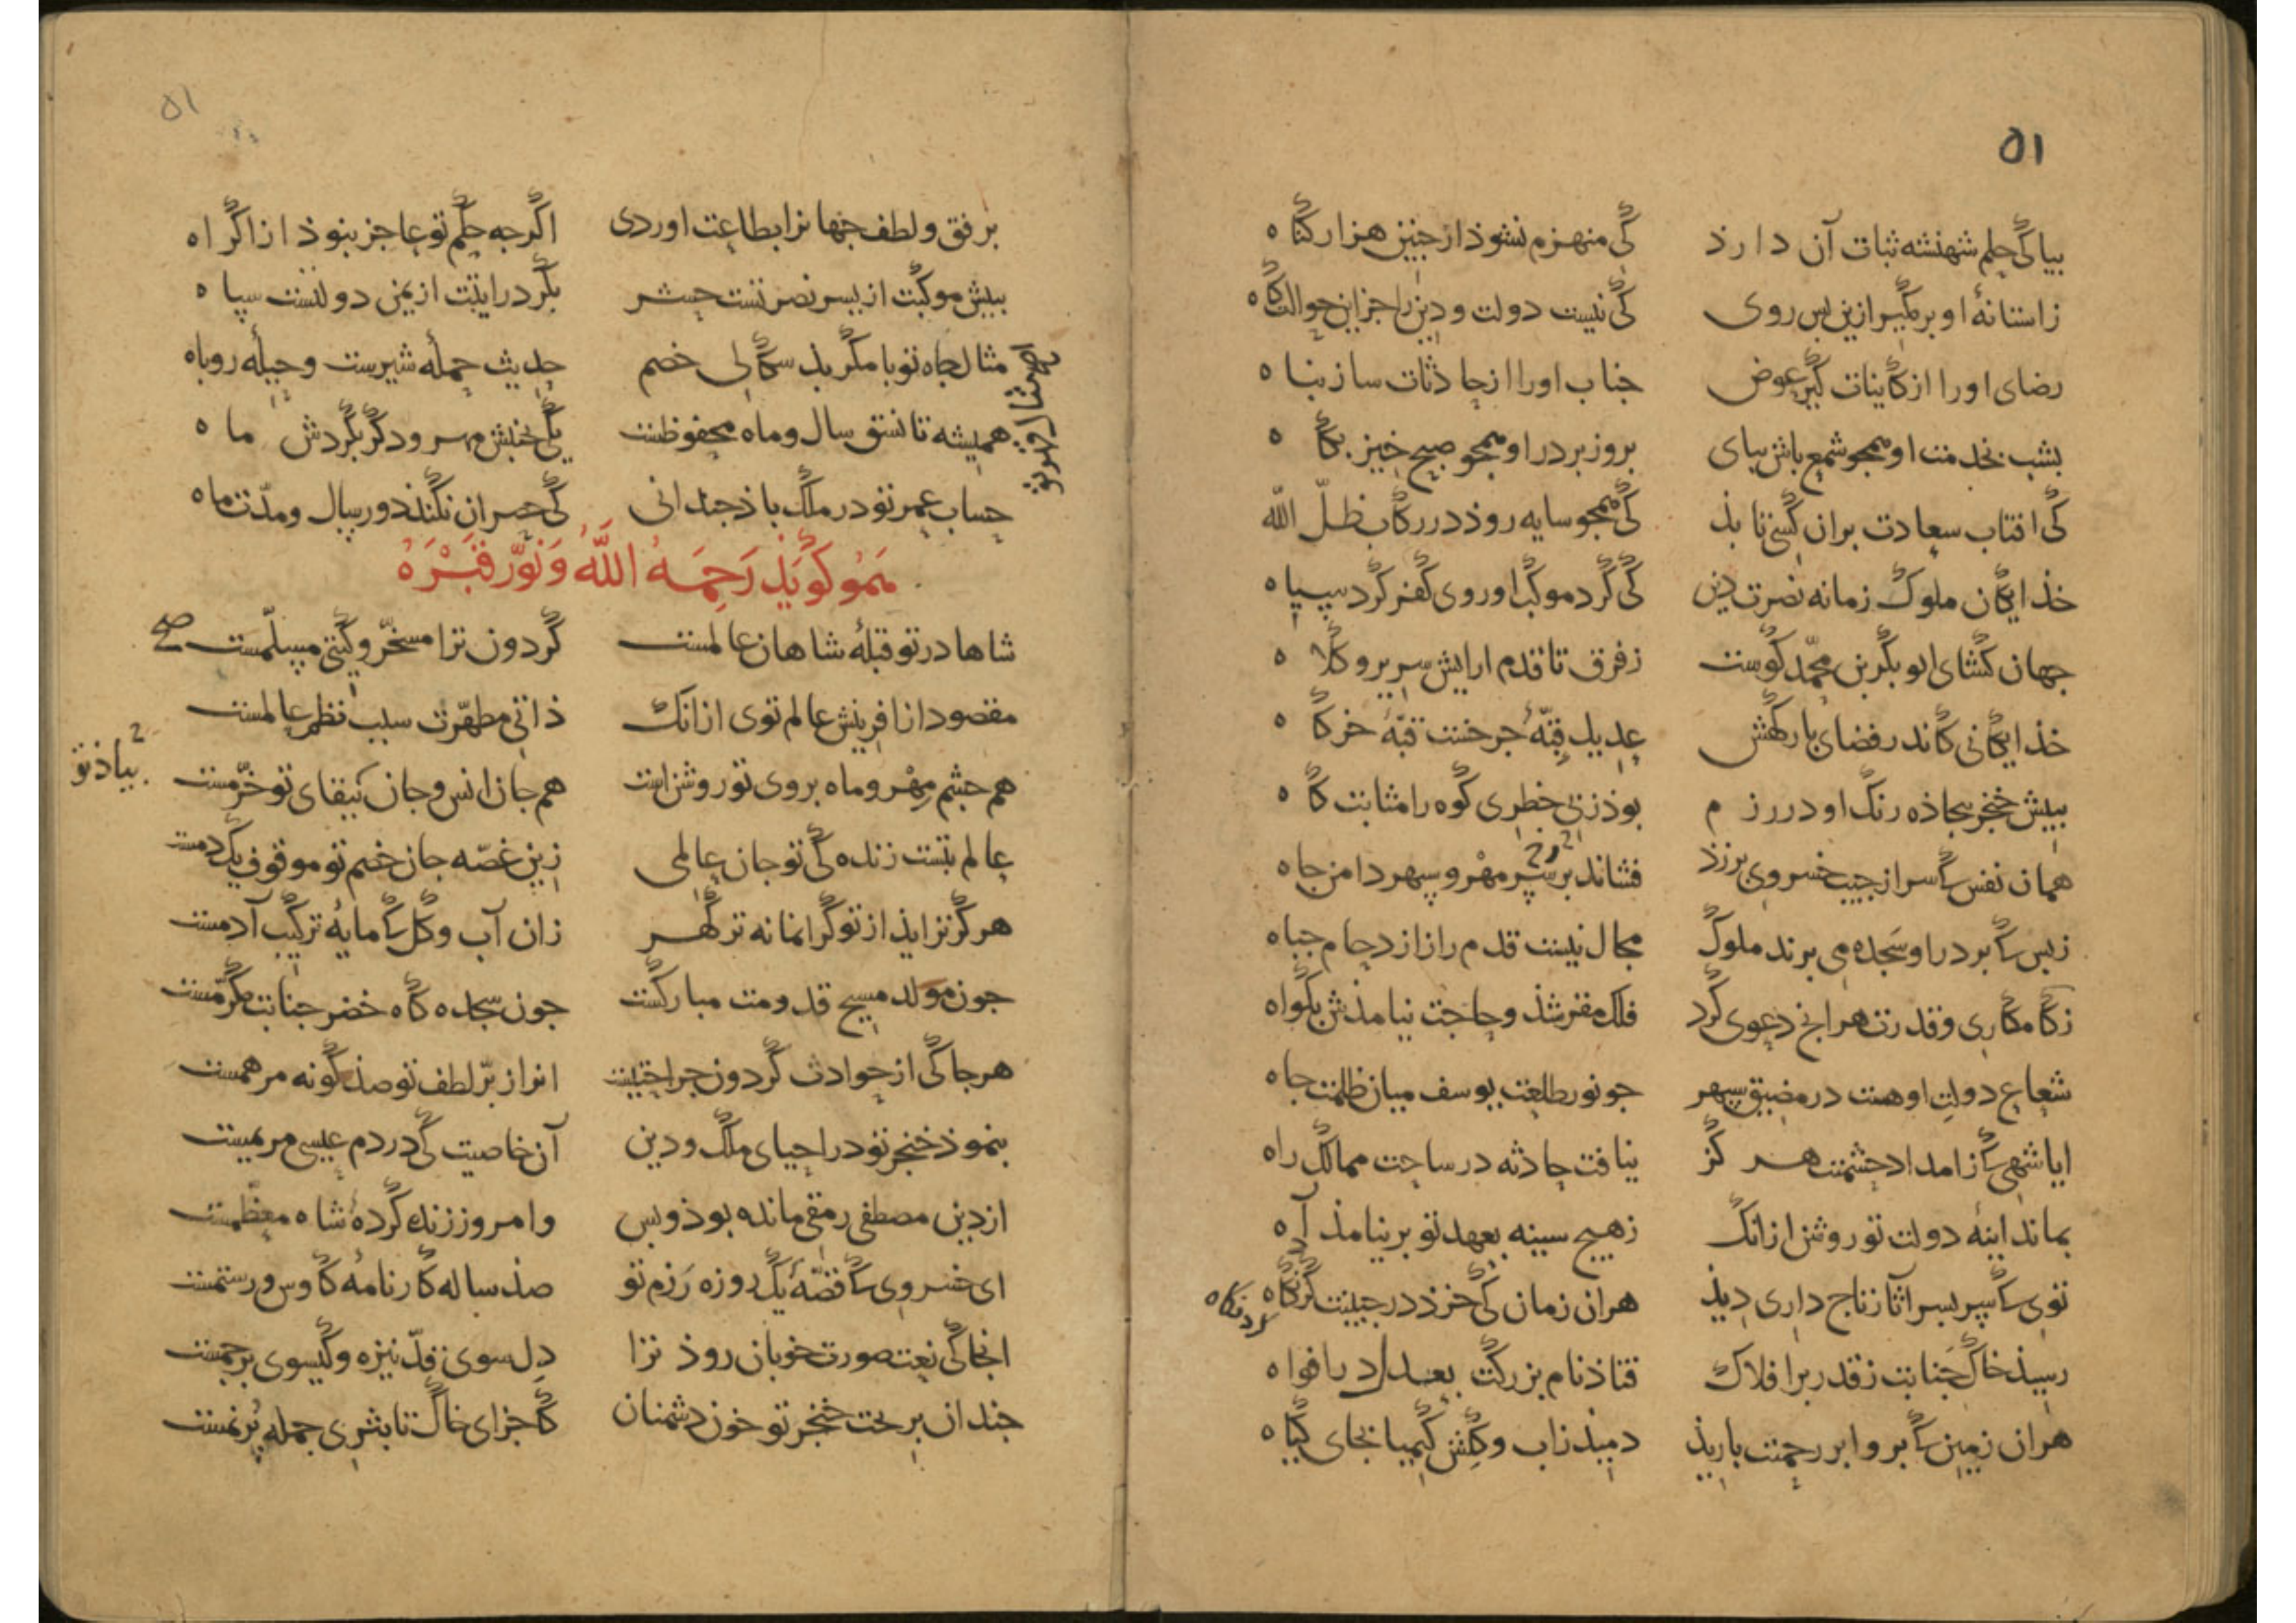 ۵۱
بیا کی حلم شهنشه ثبات آن دارذ کی منهزم نشوذ از جنین هزار کناه
زاستانهٔ او بر مکیر ازین بس روی کی نیست دولت ودین را جز این حوالت کاه
رضای اورا از کاینات کیر عوض جناب اورا از حادثات ساز بناه
بشب بخدمت او همجو شمع باش ببای بروز بر در او همجو صبح خیز بکاه
کی افتاب سعادت بران کسی تابذ کی همجو سایه روذ در رکاب ظلّ الله
خذایکان ملوک زمانه نصرت دین کی کرد موکب او روی کفر کرد سیاه
جهان کشای ابو بکر بن محمّد کوست زفرق تا قدم ارایش سریر و کلاه
خذایکانی کاندر فضای بارکهش عدیل قبّهٔ جرخست قبّهٔ خرکاه
ببیش خنجر بیجاذه رنک او در رزم بوذ زبی خطری کوه را مثابت کاه
همان نفس کاسر از جیب خسروی برزذ فشاند بر سر مهر و سپهر دامن جاه
زبس کابر در او سجده می برند ملوک مجال نیست قدم را از ازدحام جباه
زکامکاری وقدرت هرانج دعوی کرد فلک مقر شذ وحاجت نیامذش بکواه
شعاع دولت او هست در مضیق سپهر جو نور طلعت یوسف میان ظلمت جاه
ایا شهی کاز امداد حشمتت هر کز نیافت حادثه در ساحت ممالک راه
بماند اینهٔ دولت تو روشن ازانک زهیج سینه بعهد تو بر نیامذ آه
توی کاسپر بسر آثار تاج داری دیذ هران زمان کی خرذ در جبینت کرد نکاه
کرد نکاه
رسیذ خاک جنابت زقدر بر افلاک فتاذ نام بزرکت بعدل در افواه
هران زمین کابرو ابر رحمتت باریذ دمیذ زاب وکلش کیمیا بجای کیاه
۵۱
برفق ولطف جهانرا بطاعت اوردی اکرجه حلم تو عاجز بنوذ از اکراه
ببیش موکبت از بسر نصرتست حشر بکرد رایتت از یمن دولتست سپاه
مثال جاه تو با مکر بذ سکالی خصم حدیث حملهٔ شیرست وحیلهٔ روباه
همیشه تا نسق سال وماه محفوظست یکی بجنبش مهر ودکر بکردش ماه
حساب عمر تو در ملک باذ جندانی کی حصر ان نکند دور سال ومدّت ماه
هَمو کویَذ رَحِمَهُ اللَّهُ وَنَوَّرَ قَبْرَهُ
شاها در تو قبلهٔ شاهان عالمست کردون ترا مسخّر وکیتی مسلّمست
مقصود از افرینش عالم توی ازانک ذاتی مطهّرت سبب نظم عالمست
هم جشم مهر وماه بروی تو روشن است هم جان انس وجان ببقای تو خرّمست
بیاذ تو
عالم بتست زنده کی تو جان عالمی زین غصّه جان خصم تو موقوف یک دمست
هرکز نزایذ از تو کرانمانه تر کهر زان آب وکل کامایهٔ ترکیب آدمست
جون مولد مسیح قدومت مبارکست جون سجده کاه خضر جنابت مکرّمست
هرجا کی از حوادث کردون جراحتیست انرا ز برّ لطف تو صذ کونه مرهمست
بنموذ خنجر تو در احیای ملک ودین آن خاصیت کی در دم عیسی مریمست
از دین مصطفی رمقی مانده بوذ وبس وامروز زنده کردهٔ شاه معظّمست
ای خسروی کاقصّهٔ یک روزه رزم تو صذ ساله کارنامهٔ کاوس ورستمست
انجا کی نعت صورت خوبان روذ ترا دل سوی قدّ نیزه وکیسوی برجمست
جندان بریخت خنجر تو خون دشمنان کاجزای خاک تا بثری جمله پرنمست